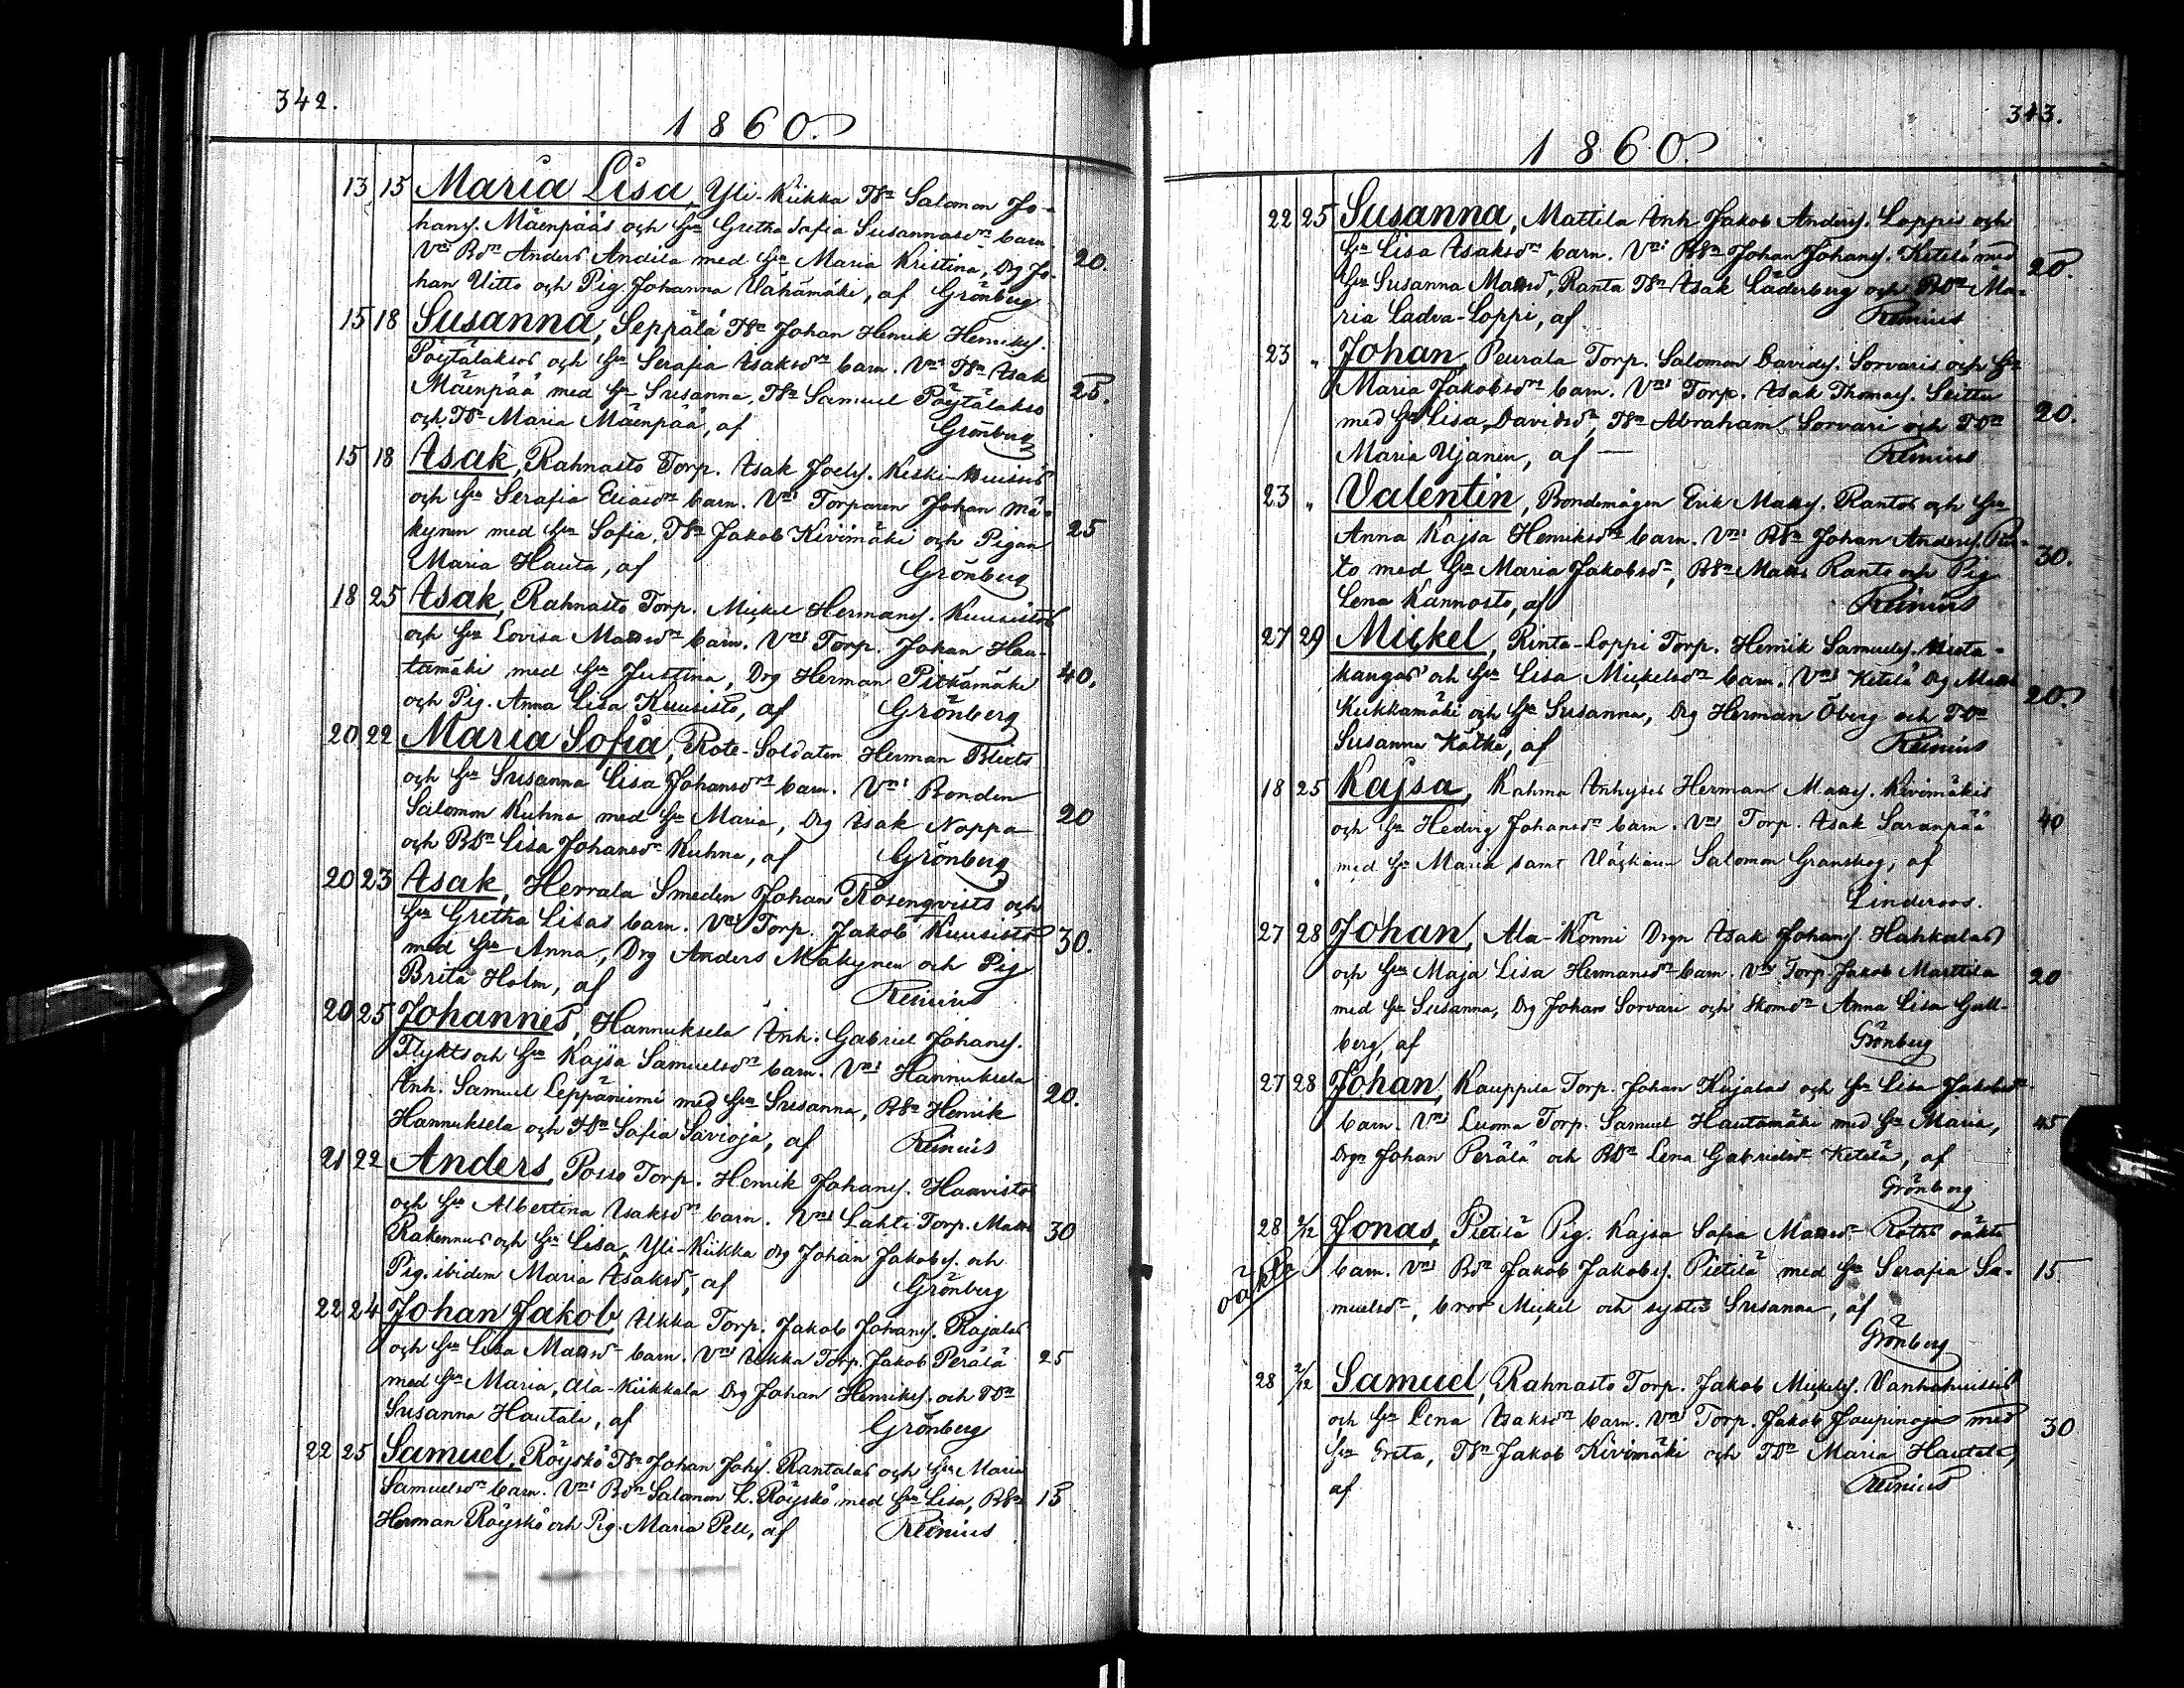 342.
1860.
13 15 Maria Lisa, Yli-Kiikka TSn Salomon Jo-
hans. Mäenpääs och Hu Gretha Sofia Susannasdrs barn.
Vne Bdn Anders Andila med Hu Maria Kristina, Drg Jo- 20.
han Uitto och Pig. Johanna Vähämäki, af Grönberg
15 18 Susanna, Seppälä TSn Johan Henrik Henriks.
Pöytälaksos och Hu Serafia Isaksdrs barn. Vne TSn Isak
Mäenpää med Hu Susanna, TSn Samuel Pöytälakso 25.
och TDr Maria Mäenpää, af Grönberg
15 18 Isak, Rahnasto Torp. Isak Joels. Keski-
och Hu Serafia Eliasdrs barn. Vne Torparen Johan Mä-
kynen med Hu Sofia, TSn Jakob Kivimäki och Pigan 25
Maria Hauta, af Grönberg
18 25 Isak, Rahnasto Torp. Mickel Hermans. Kuusistos
och Hu Lovisa Mattsdrs barn. Vne Torp. Johan Hau-
tamäki med Hu Justina, Drg Herman Pitkämäki 40.
och Pig. Anna Lisa Kuusisto, af Grönberg
20 22 Maria Sofia, Rote-Soldaten Herman Blixts
och Hu Susanna Lisa Johansdrs barn. Vne Bonden
Salomon Kuhna med Hu Maria, Drg Isak Noppa 20
och BDr Lisa Johansdr Kuhna, af Grönberg
20 23 Isak, Herrala Smeden Johan Rosenqvists och
Hu Gretha Lisas barn. Vne Torp. Jakob Kuusisto 30.
med Hu Anna, Drg Anders Mäkynen och Pig
Brita Holm, af Reinius
20 25 Johannes, Hannuksela Inh. Gabriel Johans.
Flykts och Hu Kajsa Samuelsdrs barn. Vne Hannuksela
Inh. Samuel Leppäniemi med Hu Susanna, BSn Henrik 20.
Hannuksela och TDr Sofia Savioja, af Reinius
21 22 Anders, Posso Torp. Henrik Johans. Haavistos
och Hu Albertina Isaksdrs barn. Vne Lahti Torp. Matts 30
Rakennus och Hu Lisa, Yli-Kiikka Drg Johan Jakobs. och
Pig. ibidem Maria Isaksdr, af Grönberg
22 24 Johan Jakob, Ukka Torp. Jakob Johans. Rajalas
och Hu Lisa Mattsdrs barn. Vne Ukka Torp. Jakob Perälä 25
med Hu Maria, Ala-Kiikkala Drg Johan Henriks. och TDr
Susanna Hautala, af Grönberg
22 25 Samuel, Röyskö TSn Johan Johs. Rantalas och Hu Maria
Samuelsdrs barn. Vne Bdn Salomon L. Röyskö med Hu Lisa, BSn 15
Herman Röyskö och Pig. Maria Pell, af Reinius
343.
1860.
22 25 Susanna, Mattila Inh Jakob Anders. Loppis och
Hu Lisa Isaksdrs barn. Vne BSn Johan Johans. Ketelä med 20.
Hu Susanna Mattsdr, Ranta TSn Isak Läderberg och BDr Ma-
ria Ladva-Loppi, af Reinius
23 „ Johan, Peurala Torp. Salomon Davids. Sorvaris och Hu
Maria Jakobsdrs barn. Vne Torp. Isak Thomas. Seittu
med Hu Lisa Davidsdr, TSn Abraham Sorvari och TDr 20.
Maria Ujanen, af — Reinius
23 „ Valentin, Bondemågen Erik Matts. Rantos och Hu
Anna Kajsa Henriksdrs barn. Vne BSn Johan Anders.
to med Hu Maria Jakobsdr, BSn Matts Ranto och Pig 30.
Lena Kannosto, af Reinius
27 29 Mickel, Rinta-Loppi Torp. Henrik Samuels.
kangas och Hu Lisa Mickelsdrs barn. Vne Ketelä Drg Matts 20.
Kiikkamäki och Hu Susanna, Drg Herman Öberg och TDr
Susanna Kätkä, af Reinius
18 25 Kajsa, Kahma Inhyses Herman Matts. Kivimäkis
och Hu Hedvig Johansdrs barn. Vne Torp. Isak Saranpää 40
med Hu Maria samt Väckaren Salomon Granskog, af
Linderoos.
27 28 Johan, Ala-Könni Drgn Isak Johans. Hahkalas
och Hu Maja Lisa Hermansdrs barn. Vne Torp. Jakob Marttila 20
med Hu Susanna, Drg Johan Sorvari och Skomdr Anna Lisa Gull-
berg, af Grönberg
27 28 Johan, Kauppila Torp. Johan Kujalas och Hu Lisa Jakobsdrs
barn. Vne Luoma Torp. Samuel Hautamäki med Hu Maria, 45
Drgn Johan Perälä och BDr Lena Gabrielsdr Ketelä, af
Grönberg
28 2/12 Jonas, Pietilä Pig. Kajsa Sofia Mattsdr Roths oäkta
oäkta
barn. Vne Bdn Jakob Jakobs. Pietilä med Hu Serafia Sa- 15.
muelsdr, bror Mickel och syster Susanna, af
Grönberg
28 2/12 Samuel, Rahnasto Torp. Jakob Mickels.
och Hu Lena Isaksdrs barn. Vne Torp. Jakob Jaupinoja med 30
Hu Greta, TSn Jakob Kivimäki och TDr Maria Hautala,
af Reinius